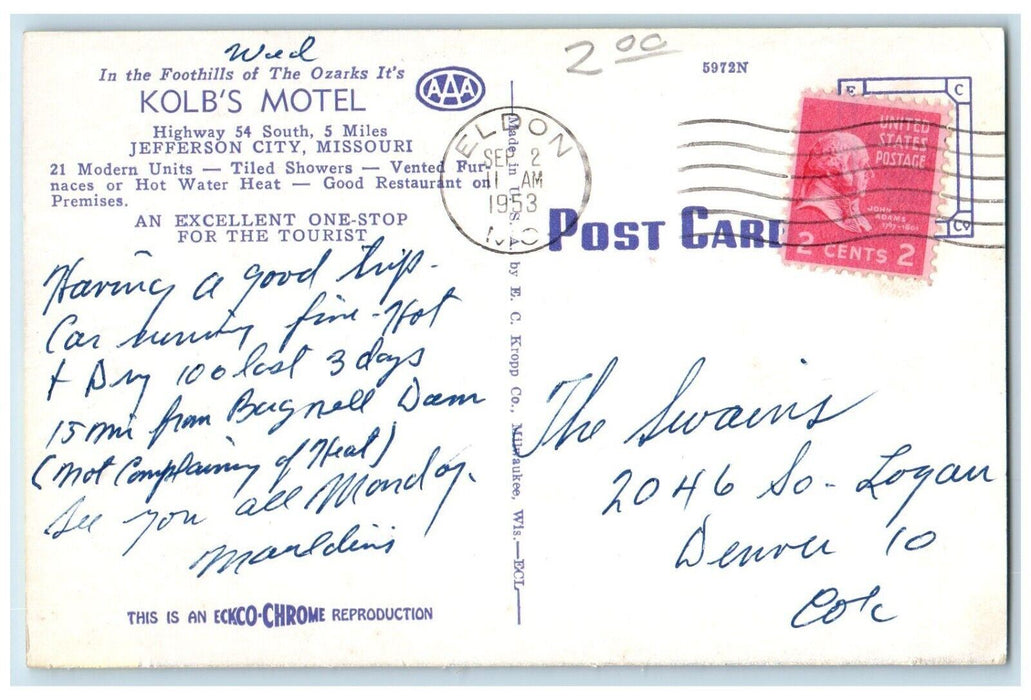 Wed
In the Foothills of The Ozarks It's
KOLB'S MOTEL
AAA
Highway 54 South, 5 Miles
JEFFERSON CITY, MISSOURI
21 Modern Units — Tiled Showers — Vented Fur-
naces or Hot Water Heat — Good Restaurant on
Premises.
AN EXCELLENT ONE-STOP
FOR THE TOURIST
Having a good trip.
Car running fine - Hot
+ Dry 100 last 3 days
15 mi from Bagnell Dam
(not Complaining of Heat)
See you all Monday.
Mauldins
THIS IS AN ECKCO-CHROME REPRODUCTION
Made in U. S. A. by E. C. Kropp Co., Milwaukee, Wis.—ECL
ELDON
SEP 2
11 AM
1953
MO
2 00
5972N
POST CARD
E C
Co
UNITED
STATES
POSTAGE
JOHN
ADAMS
2 CENTS 2
The Swains
2046 So. Logan
Denver 10
Colo